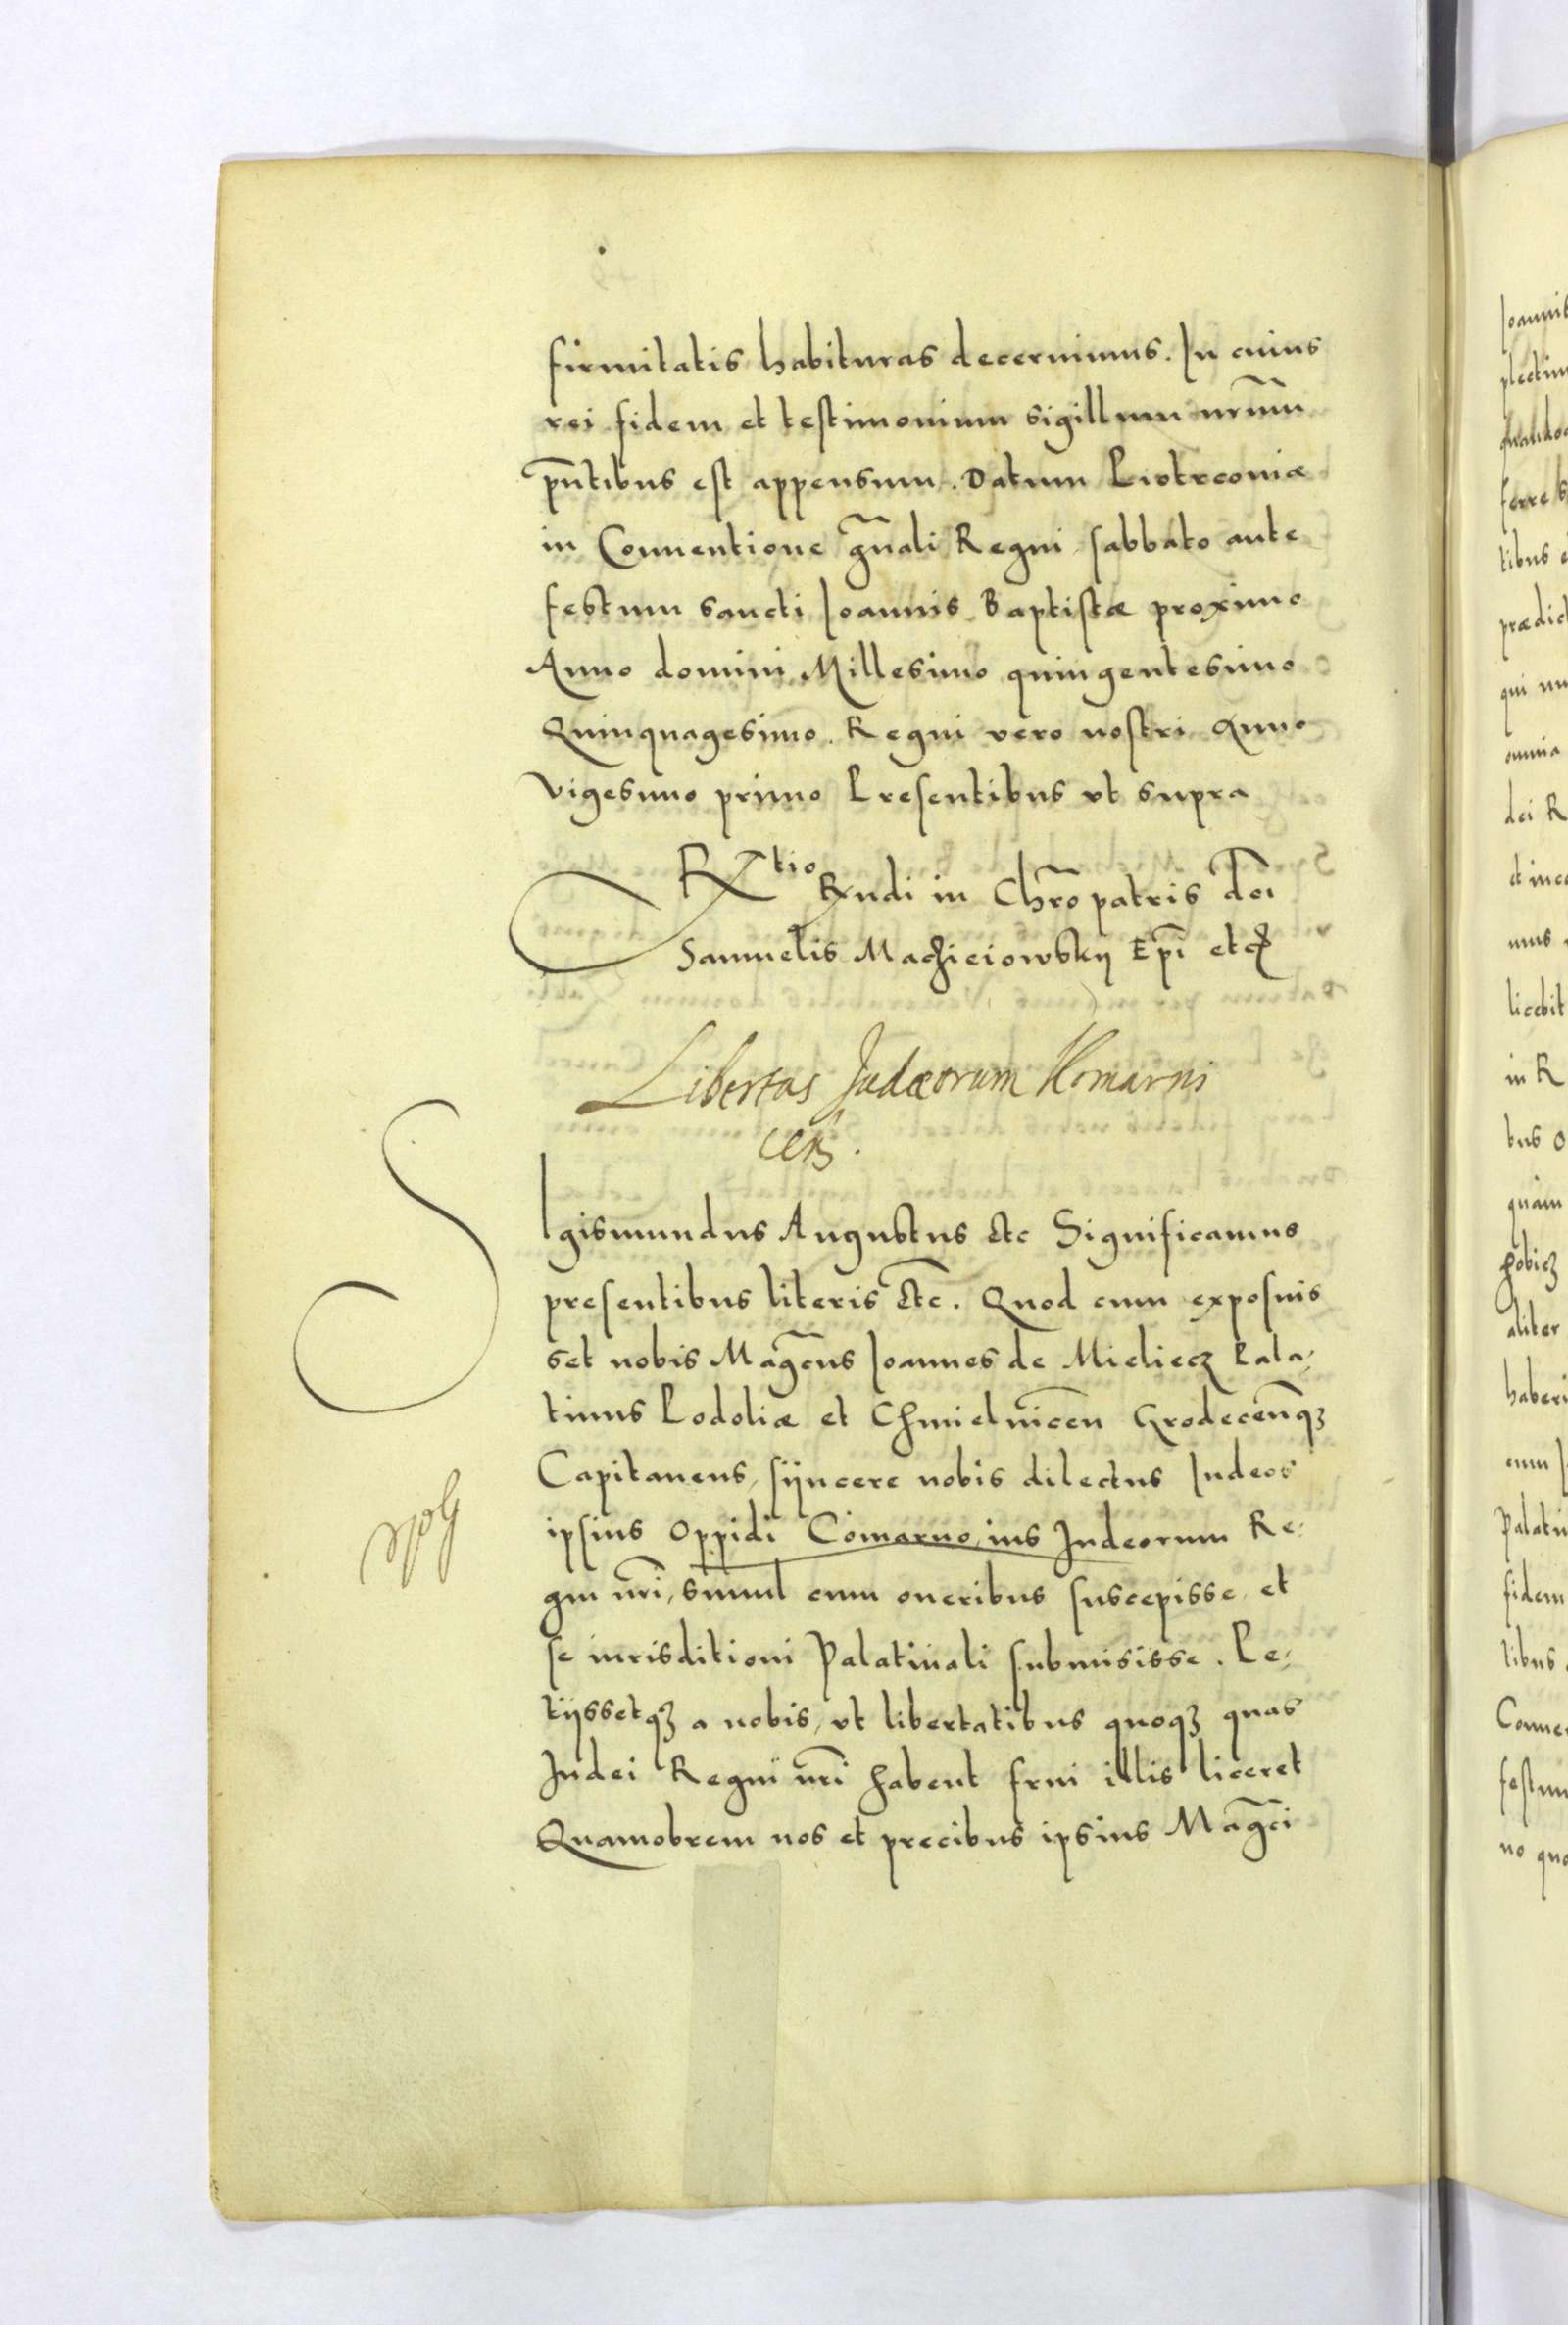 firmitatis habituras decernimus. In cuius
rei fidem et testimonium sigillum nr̃um
pñtibus est appensum. Datum Piotrconiæ
in Conuentione gñali Regni sabbato ante
festum sancti Ioannis Baptistæ proximo
Anno domini Millesimo quingentesimo
Quinquagesimo. Regni vero nostri Anno
vigesimo primo Presentibus vt supra
Rtio Rndi in Chr̃o patris dñi
Samuelis Macziciowskij Ep̃i etc
Libertas Judæorum Komarni
ceñ.
SIgismundus Augustus etc Significamus
presentibus literis etc. Quod cum exposuis
set nobis Magcus Ioannes de Mieliecz Pala,
tinus Podoliæ et Chmielnicen̄ Grodecen̄qȝ
Capitaneus, sÿncere nobis dilectus Iudeos
ipsius oppidi Comarno, ius Judeorum Re,
gni nr̃i, simul cum oneribus suscepisse, et
se iurisditioni Palatinali submisisse. Pe,
tijssetqȝ a nobis, vt libertatibus quoqȝ quas
Judei Regni nr̃i habent frui illis liceret
Quamobrem nos et precibus ipsius Magci